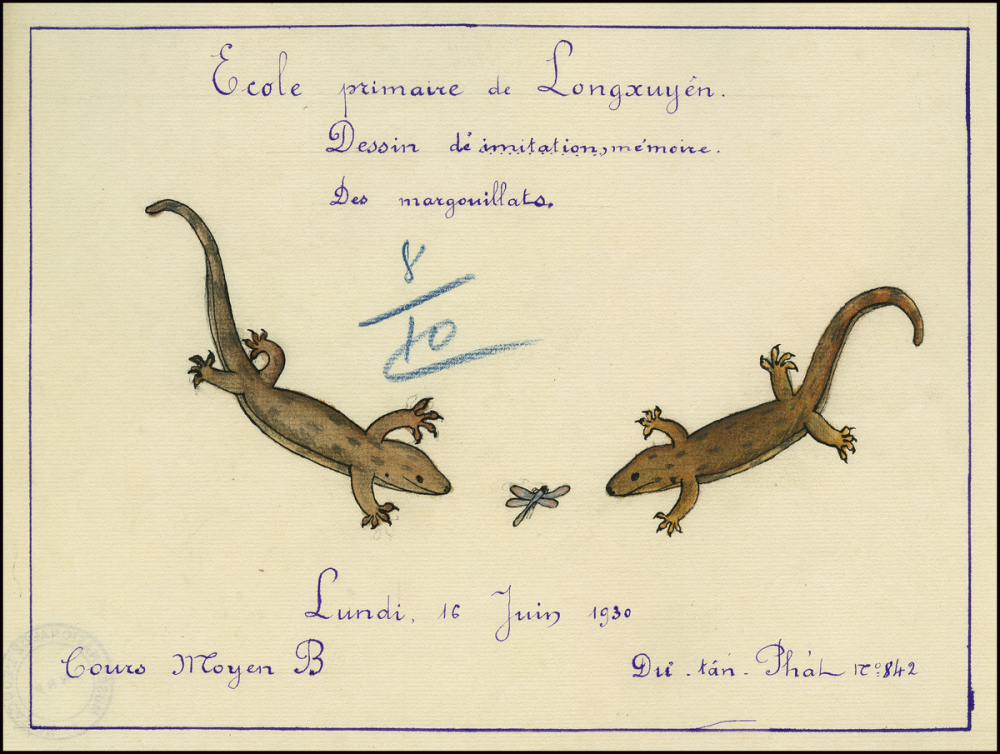 Ecole primaire de Longxuyên.
Dessin d'imitation, mémoire.
Des margouillats.
8
10
Lundi, 16 Juin 1930
Cours Moyen B
Dư-tấn-Phát n:º 842